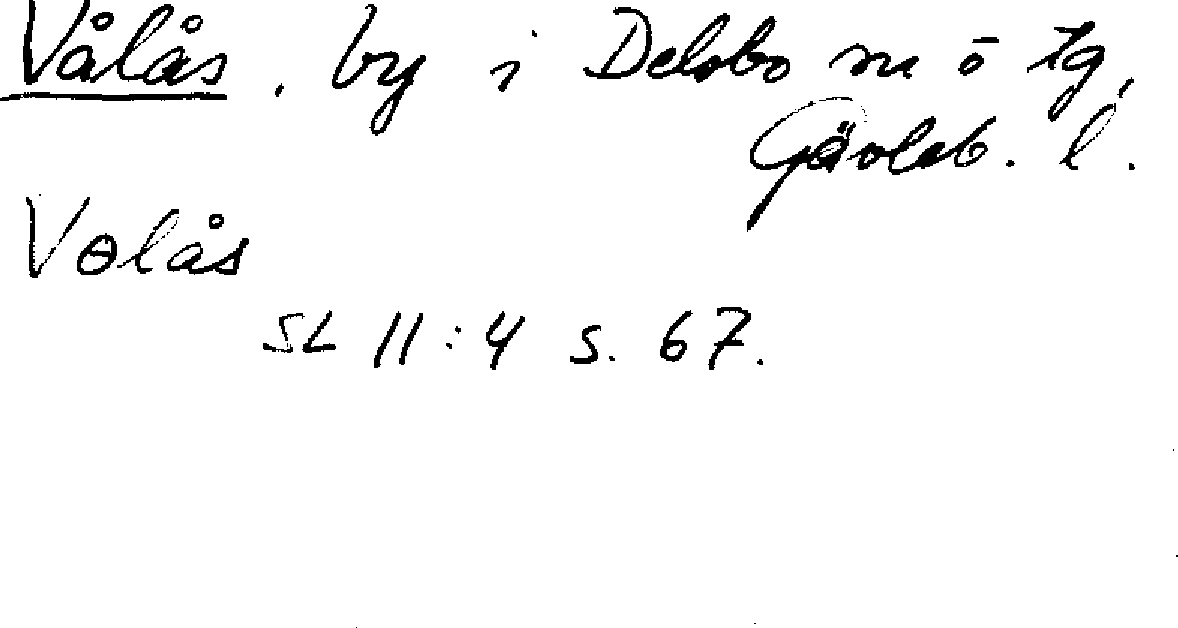 Vålås, by i Delsbo sn o tg,
Gävleb. l.
Vɵlås
SL 11:4 s. 67.